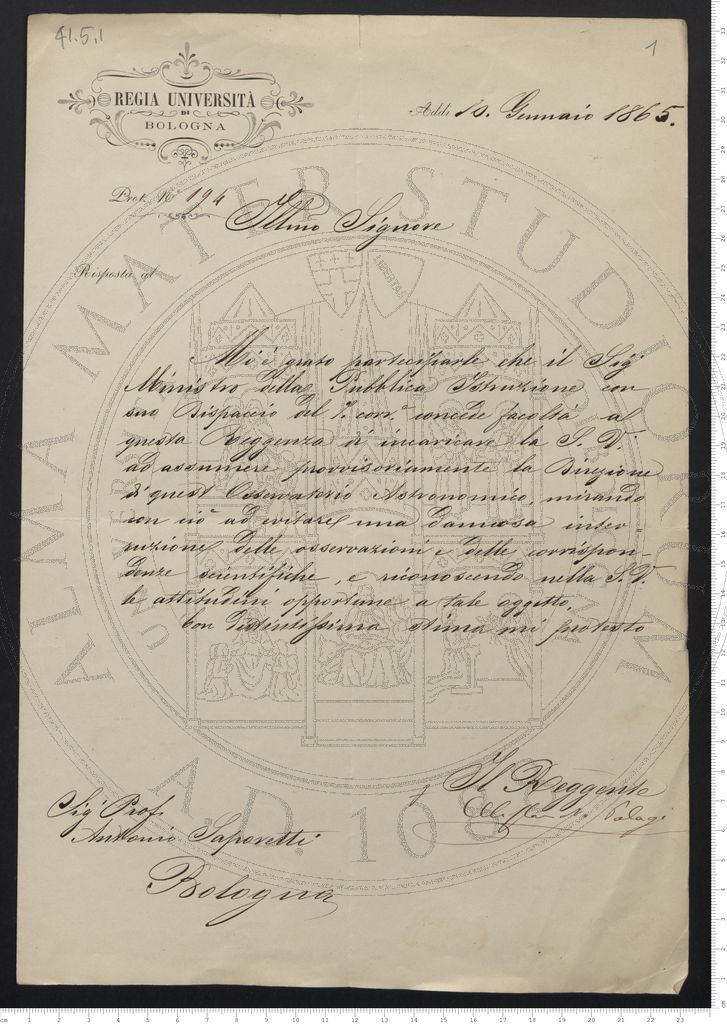 41.5.1
1
REGIA UNIVERSITÀ
DI
BOLOGNA
Addi 10. Gennaio 1865.
Prot. N.º 194
Illmo Signore
Risposta al
Mi è grato parteciparle che il Sigr
Ministro della Pubblica Istruzione con
suo Dispaccio del 7. corr.e concede facoltà al
questa Reggenza d'incaricare la S. V.
ad assumere provvisoriamente la Direzione
di quest'Osservatorio Astronomico, mirando
con ciò ad evitare una dannosa inter-
ruzione delle osservazioni e delle corrispon-
denze scientifiche, e riconoscendo nella S. V.
le attitudini opportune a tale oggetto.
Con distintissima stima mi protesto
Il Reggente
Palagi
Sigr Prof.
Antonio Saporetti
Bologna
ALMA MATER STUDIORUM
A.D. 1088
LIBERTAS